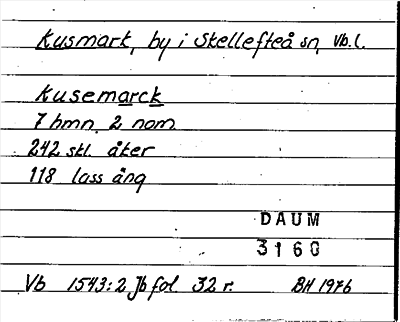 Kusmark, by i Skellefteå sn, Vb.l.
Kusemarck
7 hmn. 2 nom.
242 skl. åker
118 lass äng
DAUM
3160
Vb 1543:2 Jb fol 32 r. BH 1976